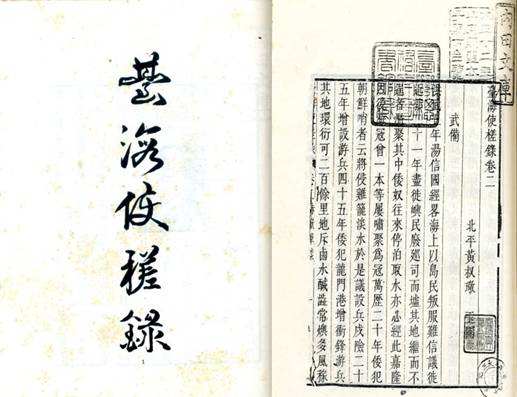 臺海使槎錄
臺海使槎錄卷二
北平黃叔璥
武備
年湯信國經畧海上以島民叛服難信議徙
十一年盡徙嶼民廢巡司而墟其地繼而不
者潛聚其中倭奴往來停泊取水亦必經此嘉隆
寇曾一本等屢嘯聚為寇萬歷二十年倭犯
朝鮮哨者云將侵雞籠淡水於是議設兵戍險二十
五年增設游兵四十五年倭犯龍門港增衝鋒游兵
其地環衍可二百餘里地斥鹵水鹹澁常燠多風稼